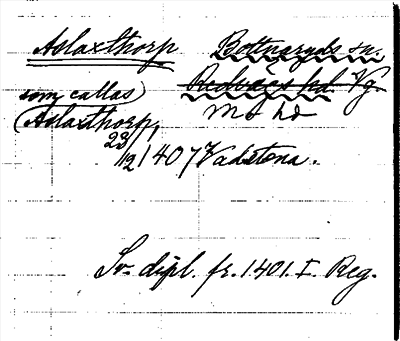 Aslaxthorp Bottnaryds sn.
Redvägs hd. Vg
som callas Mo hd
(Aslaxthorp)
23/12 1407 Vadstena.
Sv. dipl. fr. 1401. I. Reg.